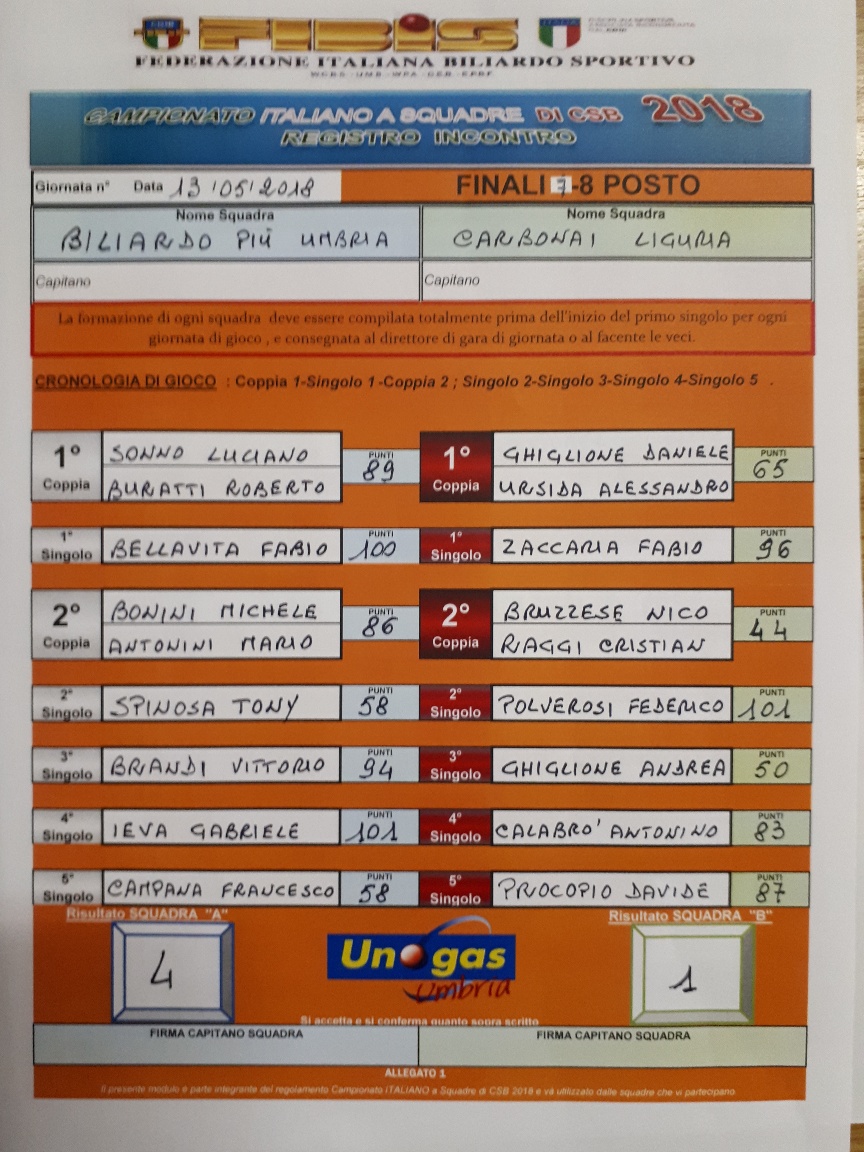 FIBIS
FEDERAZIONE ITALIANA BILIARDO SPORTIVO
CAMPIONATO ITALIANO A SQUADRE DI CSB 2018
REGISTRO INCONTRO
Giornata n° Data 13/05/2018 FINALI 7-8 POSTO
Nome Squadra Nome Squadra
BILIARDO PIÙ UMBRIA CARBONAI LIGURIA
Capitano Capitano
La formazione di ogni squadra deve essere compilata totalmente prima dell'inizio del primo singolo per ogni
giornata di gioco , e consegnata al direttore di gara di giornata o al facente le veci.
CRONOLOGIA DI GIOCO : Coppia 1-Singolo 1 -Coppia 2 ; Singolo 2-Singolo 3-Singolo 4-Singolo 5 .
1° Coppia SONNO LUCIANO BURATTI ROBERTO PUNTI 89 1° Coppia GHIGLIONE DANIELE URSIDA ALESSANDRO PUNTI 65
1° Singolo BELLAVITA FABIO PUNTI 100 1° Singolo ZACCARIA FABIO PUNTI 96
2° Coppia BONINI MICHELE ANTONINI MARIO PUNTI 86 2° Coppia BRUZZESE NICO RIAGGI CRISTIAN PUNTI 44
2° Singolo SPINOSA TONY PUNTI 58 2° Singolo POLVEROSI FEDERICO PUNTI 101
3° Singolo BRIANDI VITTORIO PUNTI 94 3° Singolo GHIGLIONE ANDREA PUNTI 50
4° Singolo IEVA GABRIELE PUNTI 101 4° Singolo CALABRO' ANTONINO PUNTI 83
5° Singolo CAMPANA FRANCESCO PUNTI 58 5° Singolo PROCOPIO DAVIDE PUNTI 87
Risultato SQUADRA "A" Risultato SQUADRA "B"
4 Unogas 1
Umbria
Si accetta e si conferma quanto sopra scritto
FIRMA CAPITANO SQUADRA FIRMA CAPITANO SQUADRA
ALLEGATO 1
Il presente modulo e parte integrante del regolamento Campionato ITALIANO a Squadre di CSB 2018 e và utilizzato dalle squadre che vi partecipano